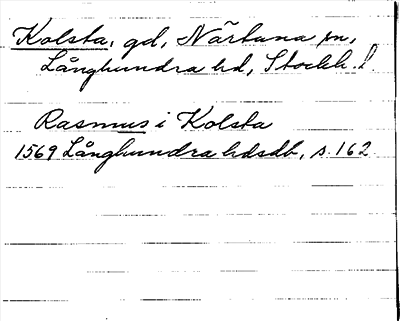 Kolsta, gd, Närtuna sn,
Långhundra hd, Stockh. l.
Rasmus i Kolsta
1569 Långhundra hdsdb, s. 162